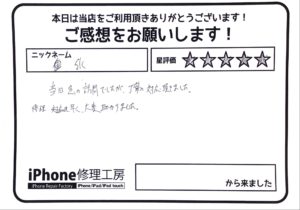 本日は当店をご利用頂きありがとうございます!
ご感想をお願いします!
ニックネーム
星評価 ☆☆☆☆☆
当日急の訪問でしたが、丁寧な対応頂きました。
修理 も早く、大変助かりました。
iPhone修理工房
iPhone Repair Factory iPhone/iPad/iPod touch
から来ました